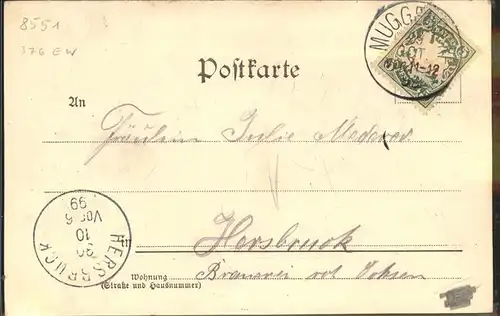 8551
376 EW
MUGG
OCT
11-12
Postkarte
An
Fräulein Julie Mederer.
in Hersbruck
Wohnung Brauerei rot. Ochsen
(Straße und Hausnummer)
HERSBRUCK
30
10
Vor 6
99